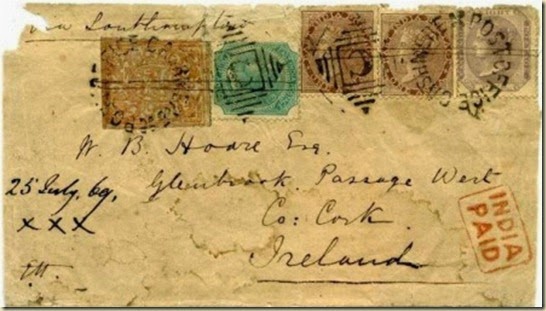 via Southampton
POST OFFICE
INDIA
INDIA
W. B. Hoare Esq.
Glenbrook. Passage West
Co: Cork.
Ireland
25 July. 69,
x x x
INDIA
PAID